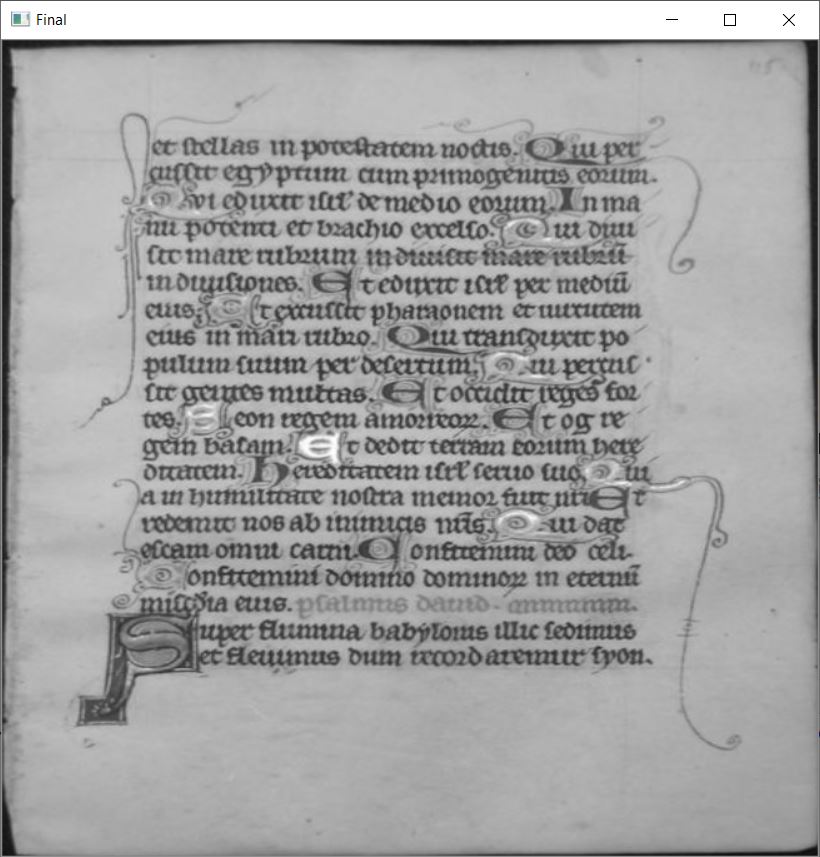 Final
115
et stellas in potestatem noctis. Qui per
cussit egyptum cum primogenitis eorum.
Qvi eduxit isrl̄ de medio eorum. In ma
nu potenti et brachio excelso. Qui diui
sit mare rubrum in diuisit mare rubrū
in diuisiones. Et eduxit isrl̄ per mediū
eius. Et excussit pharaonem et uirtutem
eius in mari rubro. Qui transduxit po
pulum suum per desertum. Qui percus
sit gentes multas. Et occidit reges for
tes. Seon regem amorreoꝝ. Et og re
gem basam. Et dedit terram eorum here
ditatem. Hereditatem isrl̄ seruo suo. Qui
a in humilitate nostra memor fuit nri Et
redemit nos ab inimicis nr̄is. Qui dat
escam omni carni. Confitemini deo celi.
Confitemini domino dominoꝝ in eternū
mis̄c̄dia eius. psalmus dauid.
Super flumina babylonis illic sedimus
et fleuimus dum recordaremur syon.